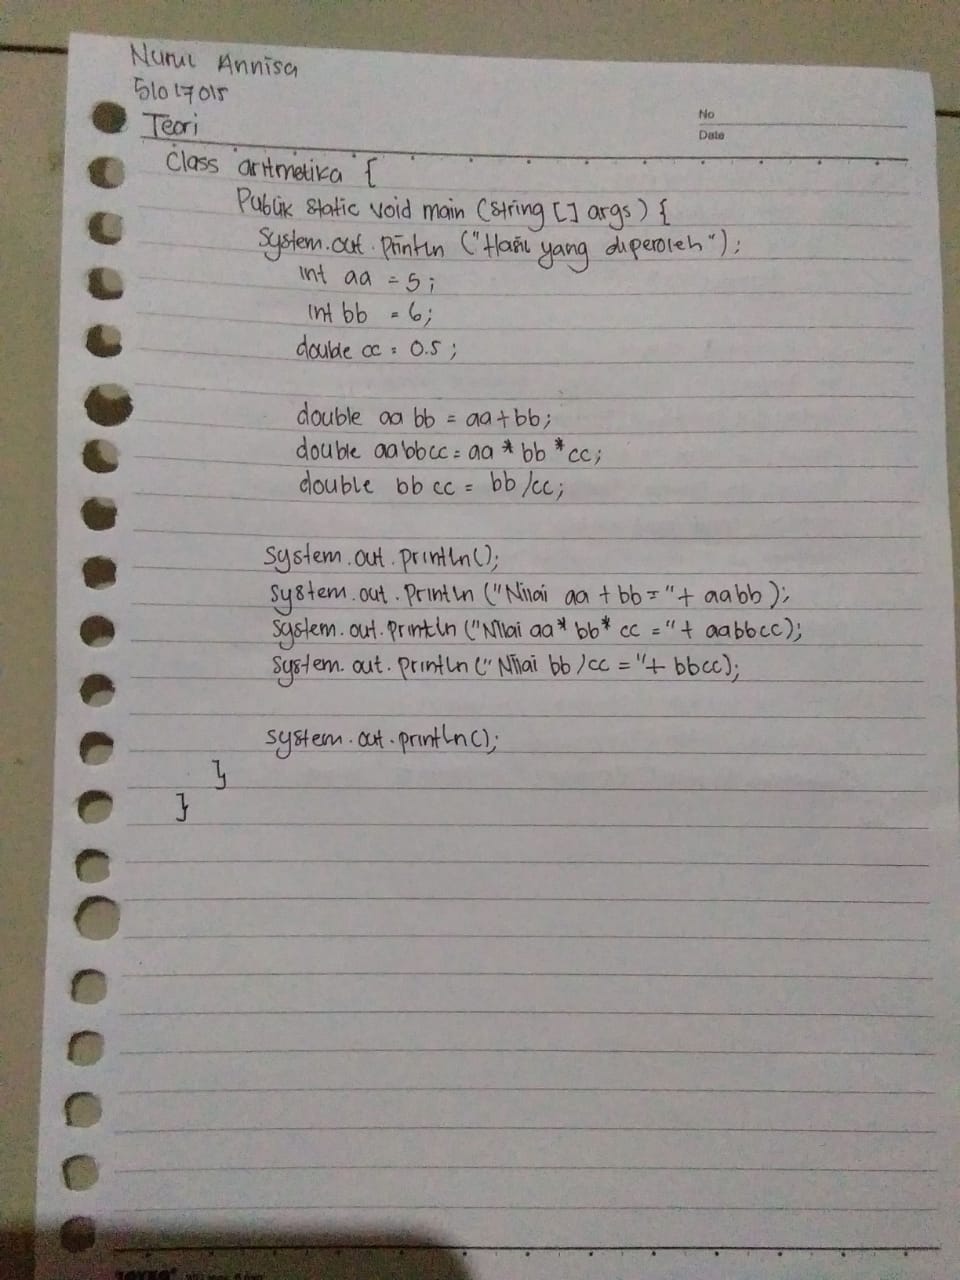 Nurul Annisa
51017015
Teori
No
Date
Class aritmetika {
Publik static void main (string [] args) {
System.out.println ("Hasil yang diperoleh");
int aa = 5;
int bb = 6;
double cc = 0.5;
double aa bb = aa+bb;
double aabbcc = aa * bb * cc;
double bb cc = bb/cc;
system.out.println();
system.out.println ("Nilai aa + bb = "+ aabb);
system.out.println ("Nilai aa* bb* cc = "+ aabbcc);
system.out.println ("Nilai bb/cc = "+ bbcc);
system.out.println();
}
}